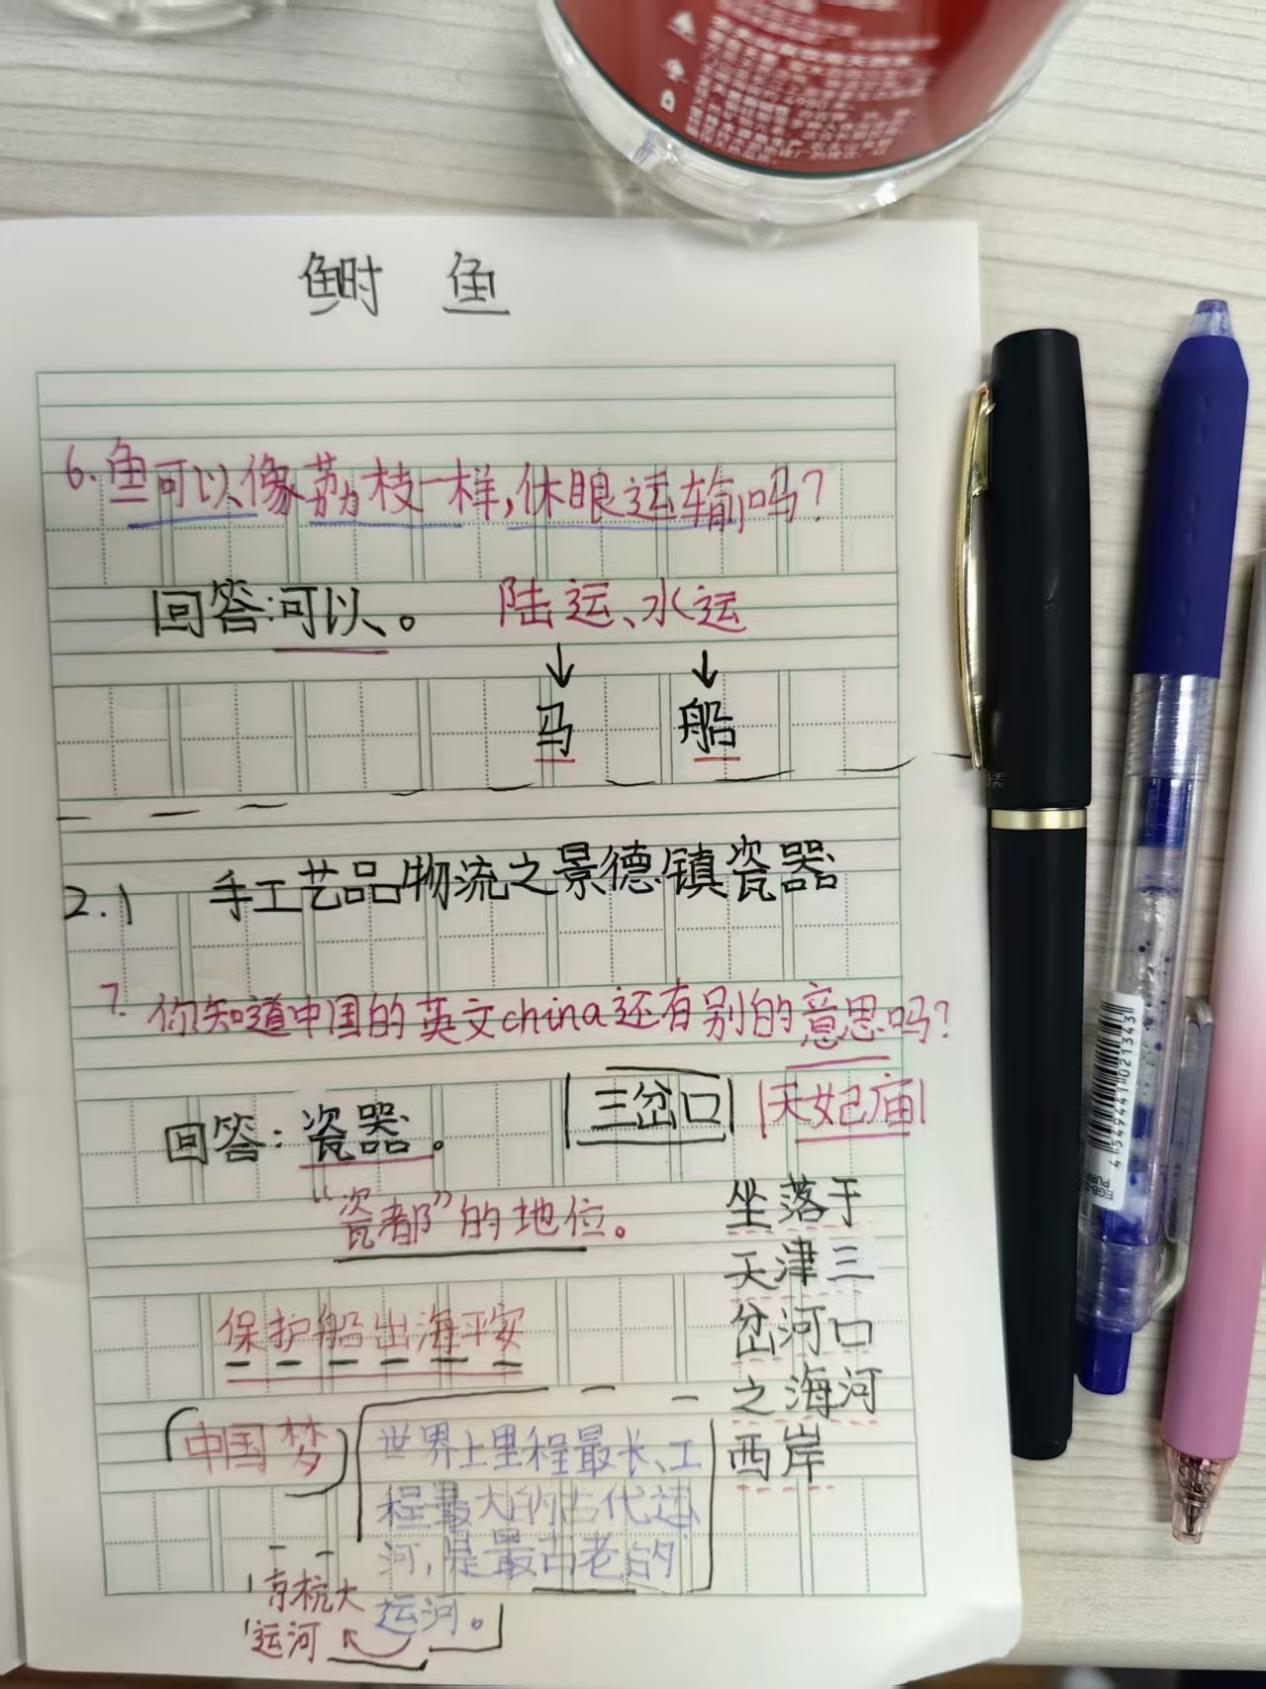 鲥 鱼
6.鱼可以像荔枝一样,休眠运输吗?
回答:可以。 陆运、水运
↓ ↓
马 船
2.1 手工艺品物流之景德镇瓷器
7.你知道中国的英文china还有别的意思吗?
回答:瓷器。 三岔口 天妃庙
“瓷都”的地位。
坐落于
天津三
岔河口
之海河
西岸
保护船出海平安
中国梦
世界上里程最长、工
程最大的古代运
河,是最古老的
运河。
京杭大
运河
4549441021343